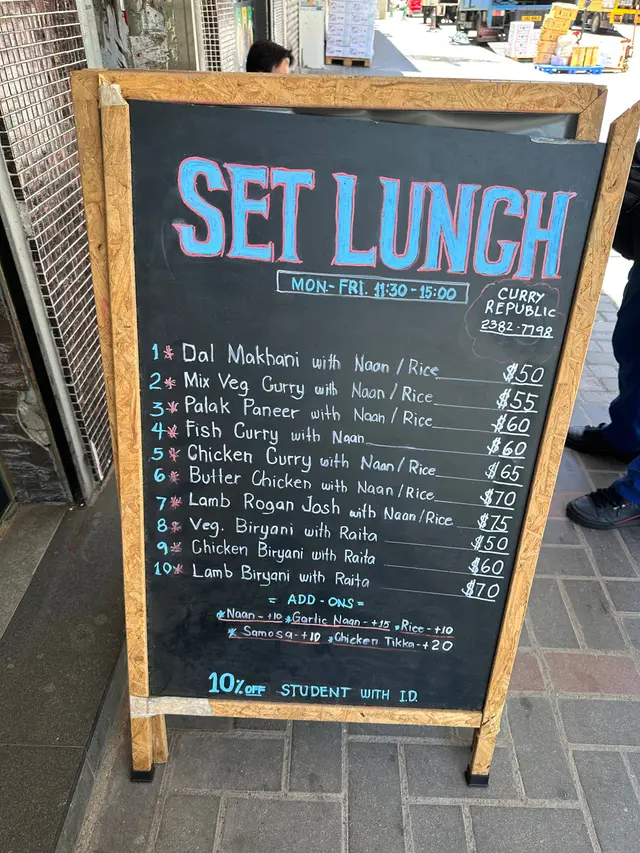 SET LUNCH
MON.- FRI. 11:30 - 15:00
CURRY
REPUBLIC
2382-7798
1* Dal Makhani with Naan / Rice $50
2* Mix Veg Curry with Naan / Rice $55
3* Palak Paneer with Naan / Rice $60
4* Fish Curry with Naan $60
5* Chicken Curry with Naan / Rice $65
6* Butter Chicken with Naan / Rice $70
7* Lamb Rogan Josh with Naan / Rice $75
8* Veg. Biryani with Raita $50
9* Chicken Biryani with Raita $60
10* Lamb Biryani with Raita $70
= ADD - ONS =
* Naan - +10 * Garlic Naan - +15 * Rice - +10
* Samosa - +10 * Chicken Tikka - +20
10% OFF STUDENT WITH I.D.